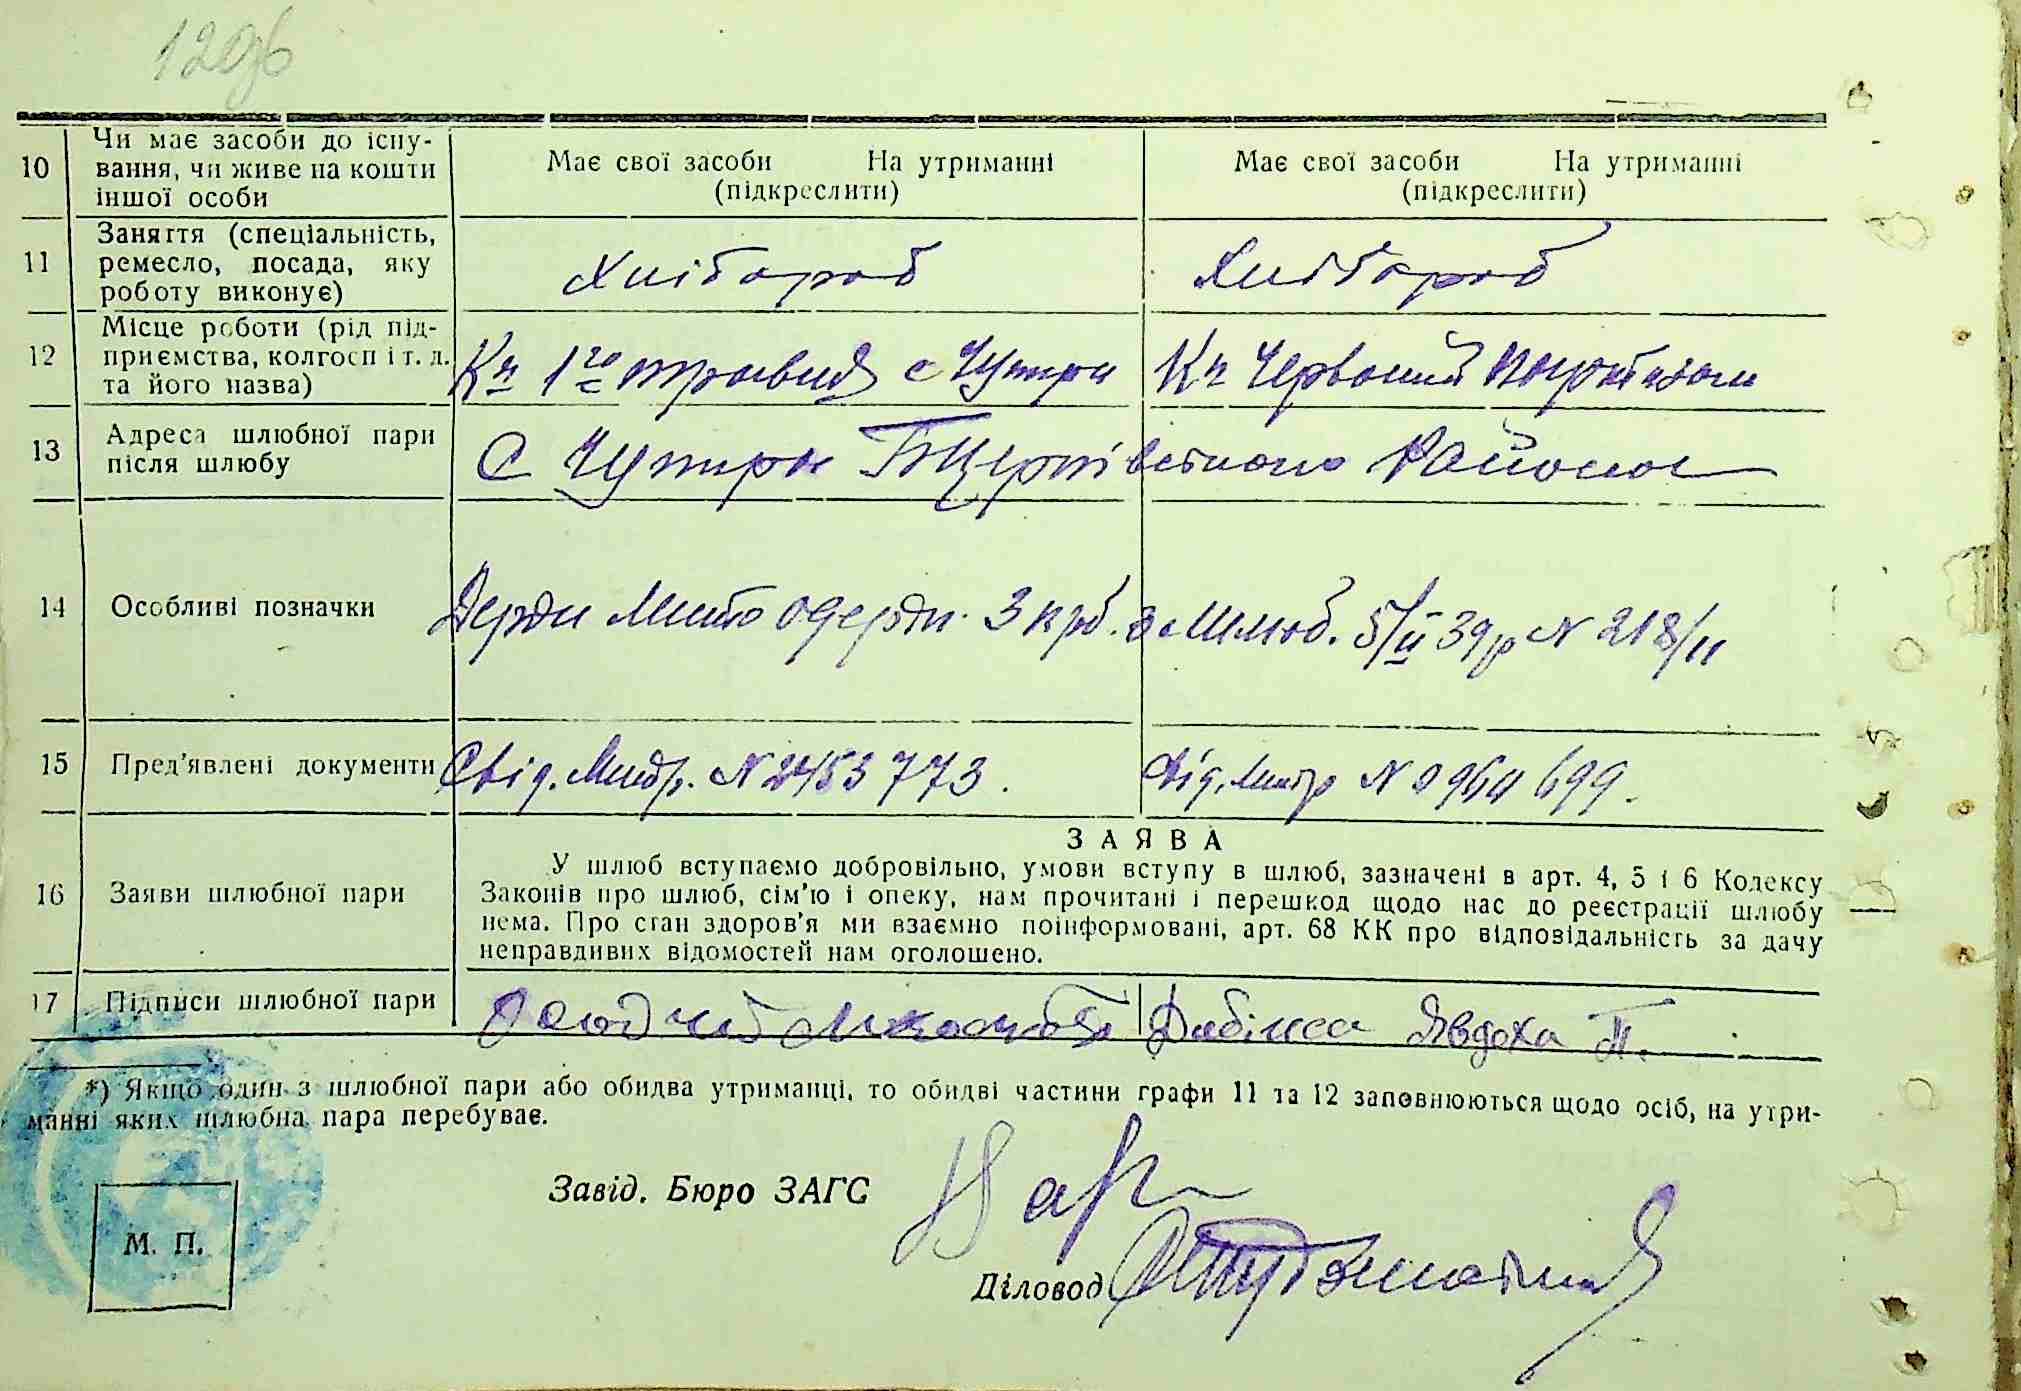 120
10 Чи має засоби до існу-
вання, чи живе на кошти
іншої особи
Має свої засоби На утриманні
(підкреслити)
Має свої засоби На утриманні
(підкреслити)
11 Заняття (спеціальність,
ремесло, посада, яку
роботу виконує)
Хлібороб
Хлібороб
12 Місце роботи (рід під-
приємства, колгосп і т. д.
та його назва)
Кп 1го травня с Чутри
Кп Червоний
13 Адреса шлюбної пари
після шлюбу
С Чутри району
14 Особливі позначки
Держ мито одерж. 3 крб. за шлюб. 5/II 39р N 218/11
15 Пред'явлені документи
Свід. Метр. N 2453773.
Свід. Метр N 0964699.
16 Заяви шлюбної пари
ЗАЯВА
У шлюб вступаємо добровільно, умови вступу в шлюб, зазначені в арт. 4, 5 і 6 Кодексу
Законів про шлюб, сім'ю і опеку, нам прочитані і перешкод щодо нас до реєстрації шлюбу
нема. Про стан здоров'я ми взаємно поінформовані, арт. 68 КК про відповідальність за дачу
неправдивих відомостей нам оголошено.
17 Підписи шлюбної пари
Явдоха П.
*) Якщо один з шлюбної пари або обидва утриманці, то обидві частини графи 11 та 12 заповнюються щодо осіб, на утри-
манні яких шлюбна пара перебуває.
Завід. Бюро ЗАГС
М. П.
Діловод